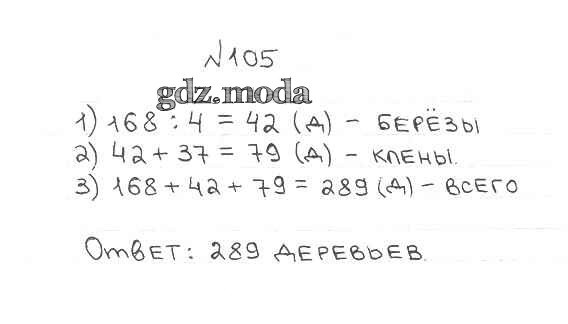 №105
gdz.moda
1) 168 : 4 = 42 (д) - БЕРЁЗЫ
2) 42 + 37 = 79 (д) - КЛЕНЫ.
3) 168 + 42 + 79 = 289 (д) - ВСЕГО
Ответ: 289 ДЕРЕВЬЕВ.